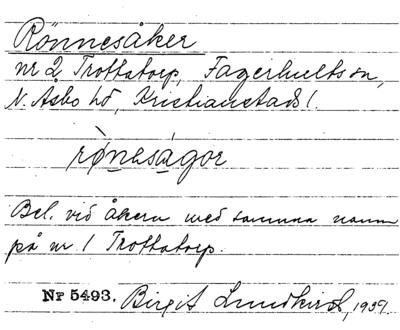 Rönnesåker
nr 2 Trottatorp, Fagerhults sn,
N. Åsbo hd, Kristianstads l.
rø̀nəságor
Bel. vid åkern med samma namn
på nr 1 Trottatorp.
Nr 5493. Birgit Lundkvist, 1939.